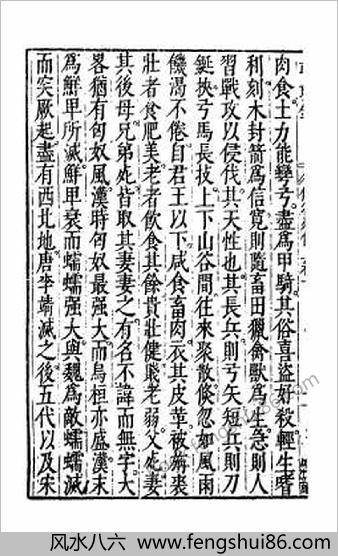 肉食士力能彎弓盡爲甲騎其俗喜盜好殺輕生嗜
利刻木封箭爲信寛則隨畜田獵禽獸爲生急則人
習戰攻以侵伐其天性也其長兵則弓矢短兵則刀
鋋挾弓馬長技上下山谷間徃來聚散倏忽如風雨
饑渴不倦自君王以下咸食畜肉衣其皮革被旃裘
壯者食肥美老者飲食其餘貴壯健賤老弱父死妻
其後母兄弟死皆取其妻妻之有名不諱而無字大
畧猶有匈奴風漢時匈奴最强大而烏桓亦盛漢末
爲鮮卑所滅鮮卑衰而蠕蠕强大與魏爲敵蠕蠕滅
而突厥起盡有西北地唐李靖滅之後五代以及宋
风水八六 www.fengshui86.com